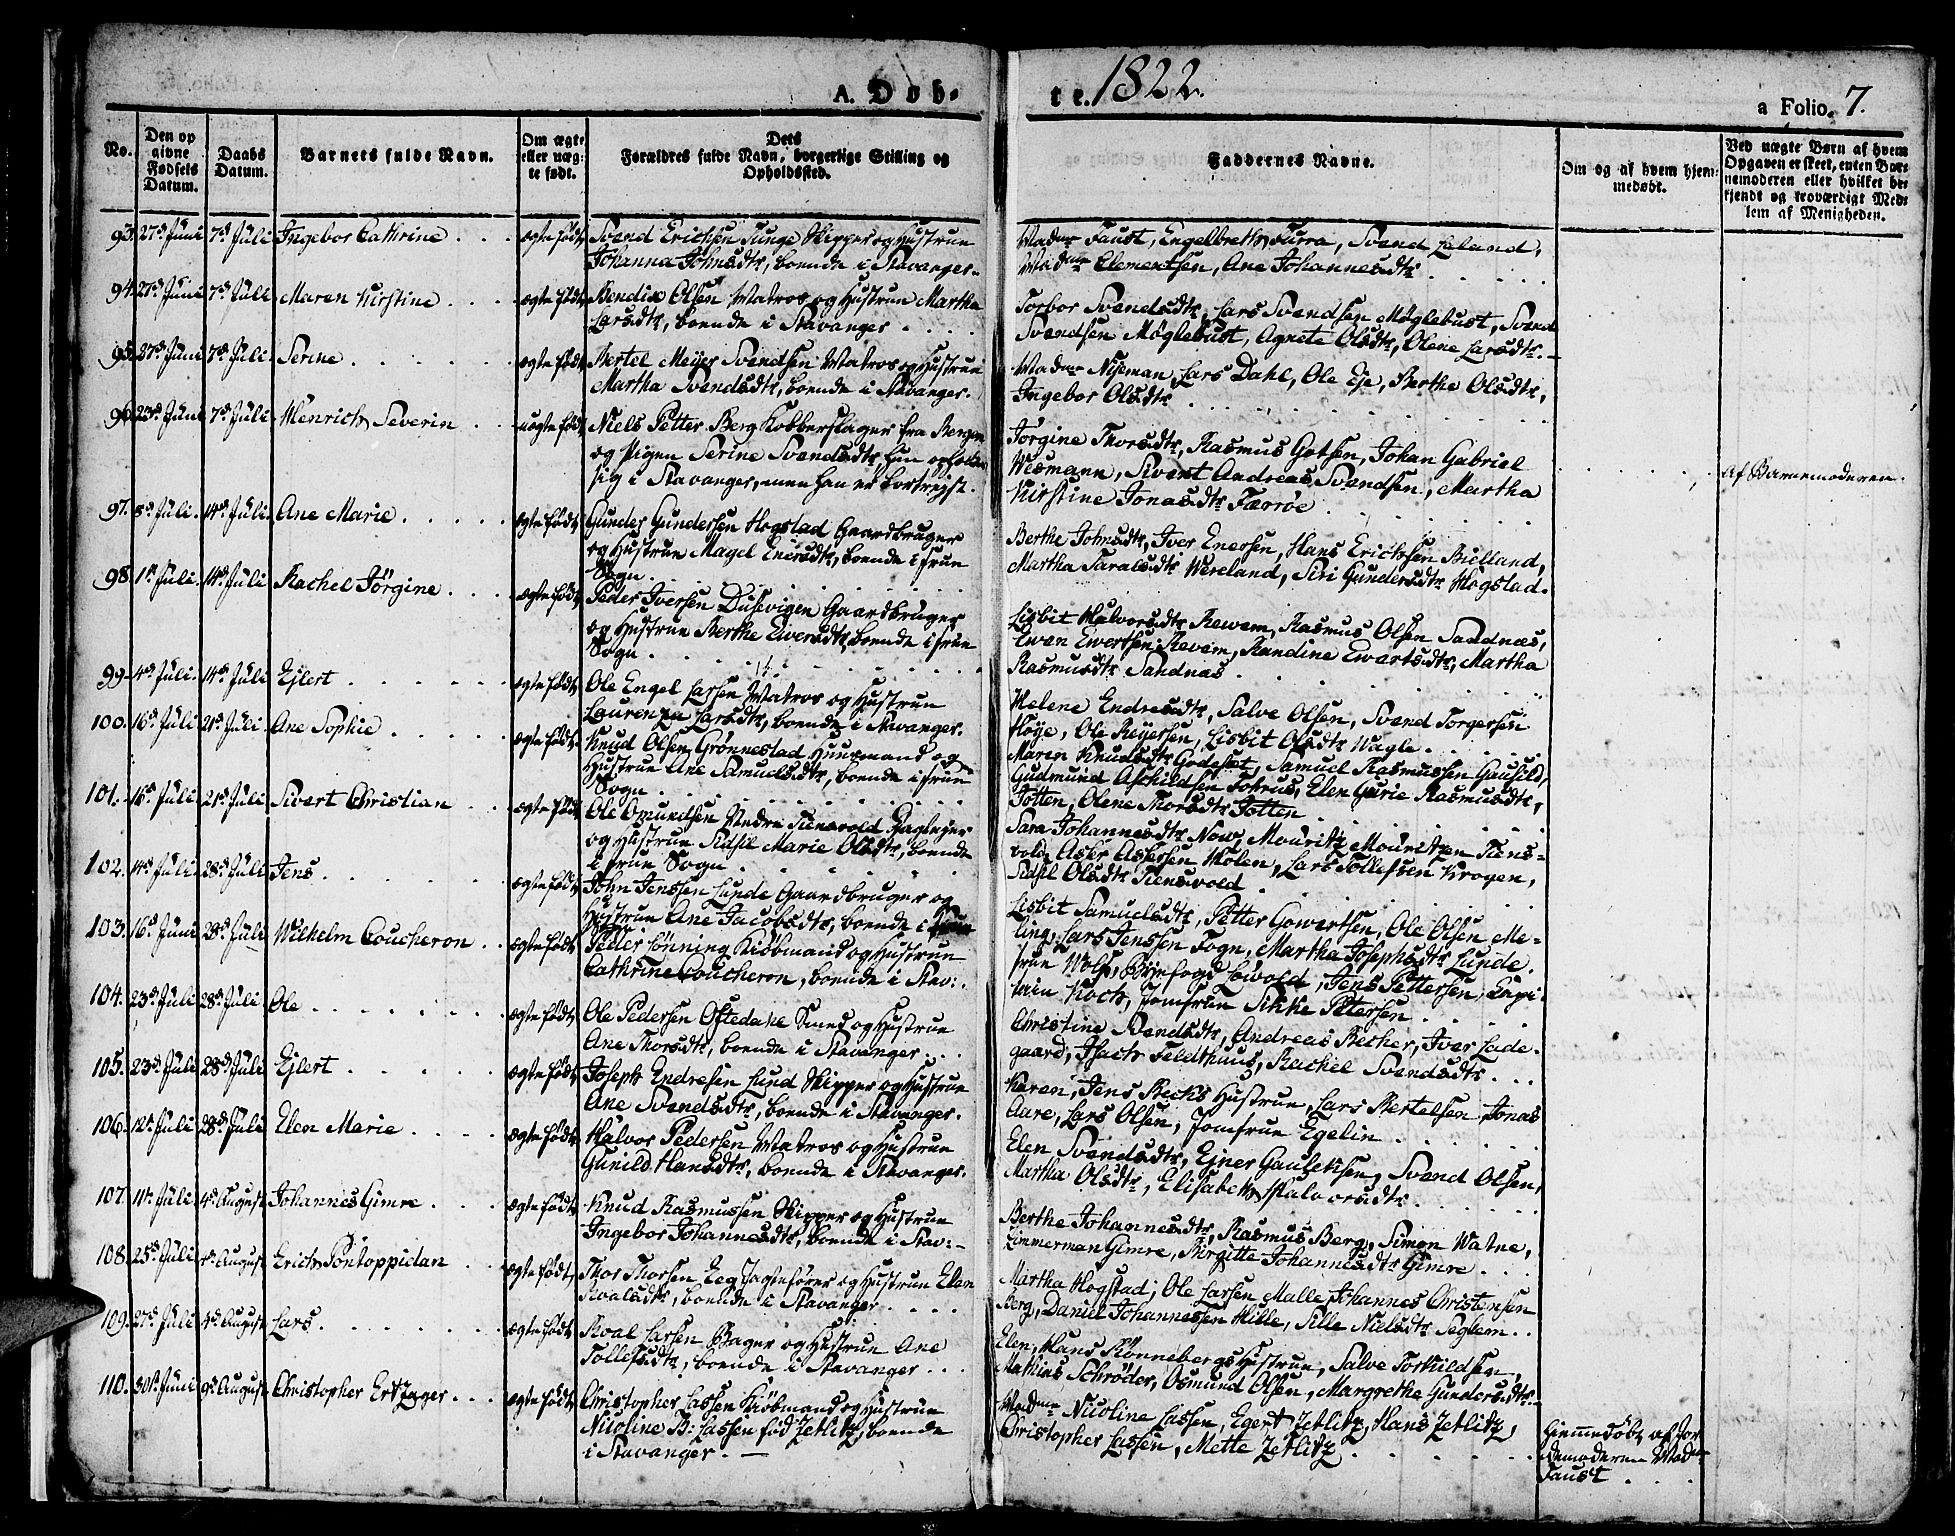 A. Døb-
te. 1822.
a Folio. 7.
No.
Den op
givne
Fødsels
Datum.
Daabs
Datum.
Barnets fulde Navn.
Om ægte
eller uæg-
te født.
Dets
Forældres fulde Navn, borgerlige Stilling og
Opholdssted.
Faddernes Navne.
Om og af hvem hjem-
medøbt.
Ved uægte Børn af hvem
Opgaven er skeet, enten Bar-
nemoderen eller hvilket be-
kjendt og troværdigt Med-
lem af Menigheden.
93. 27de Juni 7de Juli Ingebor Cathrine ægte født Svend Erichsen Tunge Skipper og Hustrue
Johanna Johnsdtr, boende i Stavanger.
Madme Faust, Engelbreth Furra, Svend Leland,
Madme Clementsen, Ane Johannesdtr
94. 27de Juni 7de Juli Maren Kirstine ægte født Bendix Olsen Matros og Hustrue Martha
Larsdtr, boende i Stavanger
Torbor Svendsdtr, Lars Svendsen Møglebust, Svend
Svendsen Møglebust, Agnete Olsdtr, Olene Larsdtr.
95. 27de Juni 7de Juli Serine ægte født Bertel Meyer Svendsen Matros og Hustrue
Martha Svendsdtr, boende i Stavanger.
Madme Niseman, Lars Dahl, Ole Eje, Berthe Olsdtr,
Ingebor Olsdtr
96. 23de Juni 7de Juli Henrich Severin uægte født Niels Petter Berg Kobberslager fra Bergen
og Pigen Serine Svendsdtr, hun opholder
sig i Stavanger, men han er bortrejst.
Jørgine Thorsdtr, Rasmus Gotsen, Johan Gabriel
Wesmann, Sivert Andreas Svendsen, Martha
Kirstine Jonasdtr Færrøe
af Barnemoderen.
97. 8de Juli. 14de Juli. Ane Marie ægte født Gunder Gundersen Hogstad Gaardbruger
og Hustrue Magel Enersdtr, boende i frue
Sogn
Berthe Johnsdtr, Iver Enersen, Hans Erichsen Bielland,
Martha Taralsdtr Wereland, Siri Gundersdtr Hogstad.
98. 1ste Juli. 14de Juli Rachel Jörgine ægte født Peder Iversen Dusevigen Gaardbruger
og Hustrue Berthe Ewersdtr, boende i frue
Sogn
Lisbit Halvorsdtr Rewem, Rasmus Olsen Sandnæs,
Ewen Ewertsen Revem, Randine Ewertsdtr, Martha
Rasmusdtr Sandnæs
99. 4de Juli. 14de Juli Ejlert ægte født Ole Engel Larsen Matros og Hustrue
Laurenza Larsdtr, boende i Stavanger.
Helene Endresdtr, Salve Olsen, Svend Torgersen
Høye, Ole Reyersen, Lisbit Olsdtr Wagle
100. 16de Juli 21de Juli Ane Sophie ægte født Knud Olsen Grønnestad Huusmand og
Hustrue Ane Samuelsdtr, boende i frue
Sogn
Maren Knudsdtr Godeset, Samuel Rasmussen Gausild,
Gudmund Aschildsen Fotrus, Elen Gurie Rasmusdtr,
Totten, Olene Thorsdtr Totten
101. 16de Juli 21de Juli Sivert Christian ægte født Ole Omundsen Nedre Tiensvold Daglejer
og Hustrue Sidsil Marie Olsdtr, boende
i frue Sogn
Sara Johannesdtr Now, Mouritz Mouritzen Tiens-
vold, Askr Askersen Holen, Lars Tollefsen Krogen,
Sidsil Olsdtr Tiensvold
102. 14de Juli 28de Juli Jens ægte født John Jenssen Lunde Gaardbruger og
Hustrue Ane Jacobsdtr, boende i
Lisbit Samuelsdtr, Petter Gowertsen, Ole Olsen Me-
ling, Lars Jenssen Fogn, Martha Josephsdtr Lunde.
103. 16de Juni 28de Juli Wilhelm Coucheron ægte født Peder Lönning Kiöbmand og Hustrue
Cathrine Coucheron, boende i Stav:
frue Wolf, Byefogd Löwold, Jens Pettersen, Capi-
tain Koch, Jomfrue Sikke Petersen
104. 23de Juli 28de Juli Ole ægte født Ole Pedersen Oftedahl Smed og Hustrue
Ane Thorsdtr, boende i Stavanger
Christine Svendsdtr, Andreas Becher, Iver Lade-
gaard, Isach Feldthuus, Rachel Svendsdtr
105. 23de Juli 28de Juli Ejlert ægte født Joseph Endresen Lund Skipper og Hustrue
Ane Svendsdtr, boende i Stavanger.
Karen, Jens Becks Hustrue, Lars Bertelsen, Jonas
Aare, Lars Olsen, Jomfrue Egelin
106. 12te Juli 28de Juli Elen Marie ægte født Halvor Pedersen Matros og Hustrue
Gunild Hansdtr, boende i Stavanger.
Elen Svendsdtr, Ejner Gauleksen, Svend Olsen,
Martha Olsdtr, Elisabeth Halvorsdtr
107. 11te Juli 4de August Johannes Gimre ægte født Knud Rasmussen Skipper og Hustrue
Ingebor Johannesdtr, boende i Stav:
Berthe Johannesdtr, Rasmus Berg, Simon Watne,
Zimmerman Gimre, Birgitte Johannesdtr Gimre
108. 25de Juli 4de August Erich Pontoppidan ægte født Thor Thorsen Eeg Jagtefører og Hustrue Elen
Roalsdtr, boende i Stavanger
Martha Hogstad, Ole Larsen Malle, Johannes Christensen
Berg, Daniel Johannessen Hille, Sille Nielsdtr Seglem
109. 27de Juli 4de August Lars ægte født Roal Larsen Bager og Hustrue Ane
Tollefsdtr, boende i Stavanger
Elen, Hans Rönnebergs Hustrue, Salve Torkildsen,
Mathias Schrøder, Osmund Olsen, Margrethe Gundersdtr
110. 30te Juni 9de August Christopher Ertzager ægte født Christopher Lassen Kiöbmand og Hustrue
Nicoline B: Lassen fød Zetlitz, boende
i Stavanger
Madme Nicoline Lassen, Egert Zetlitz, Hans Zetlitz,
Christopher Lassen, Mette Zetlitz
Hiemmedöbt af Jor
demoderen Madme
Faust